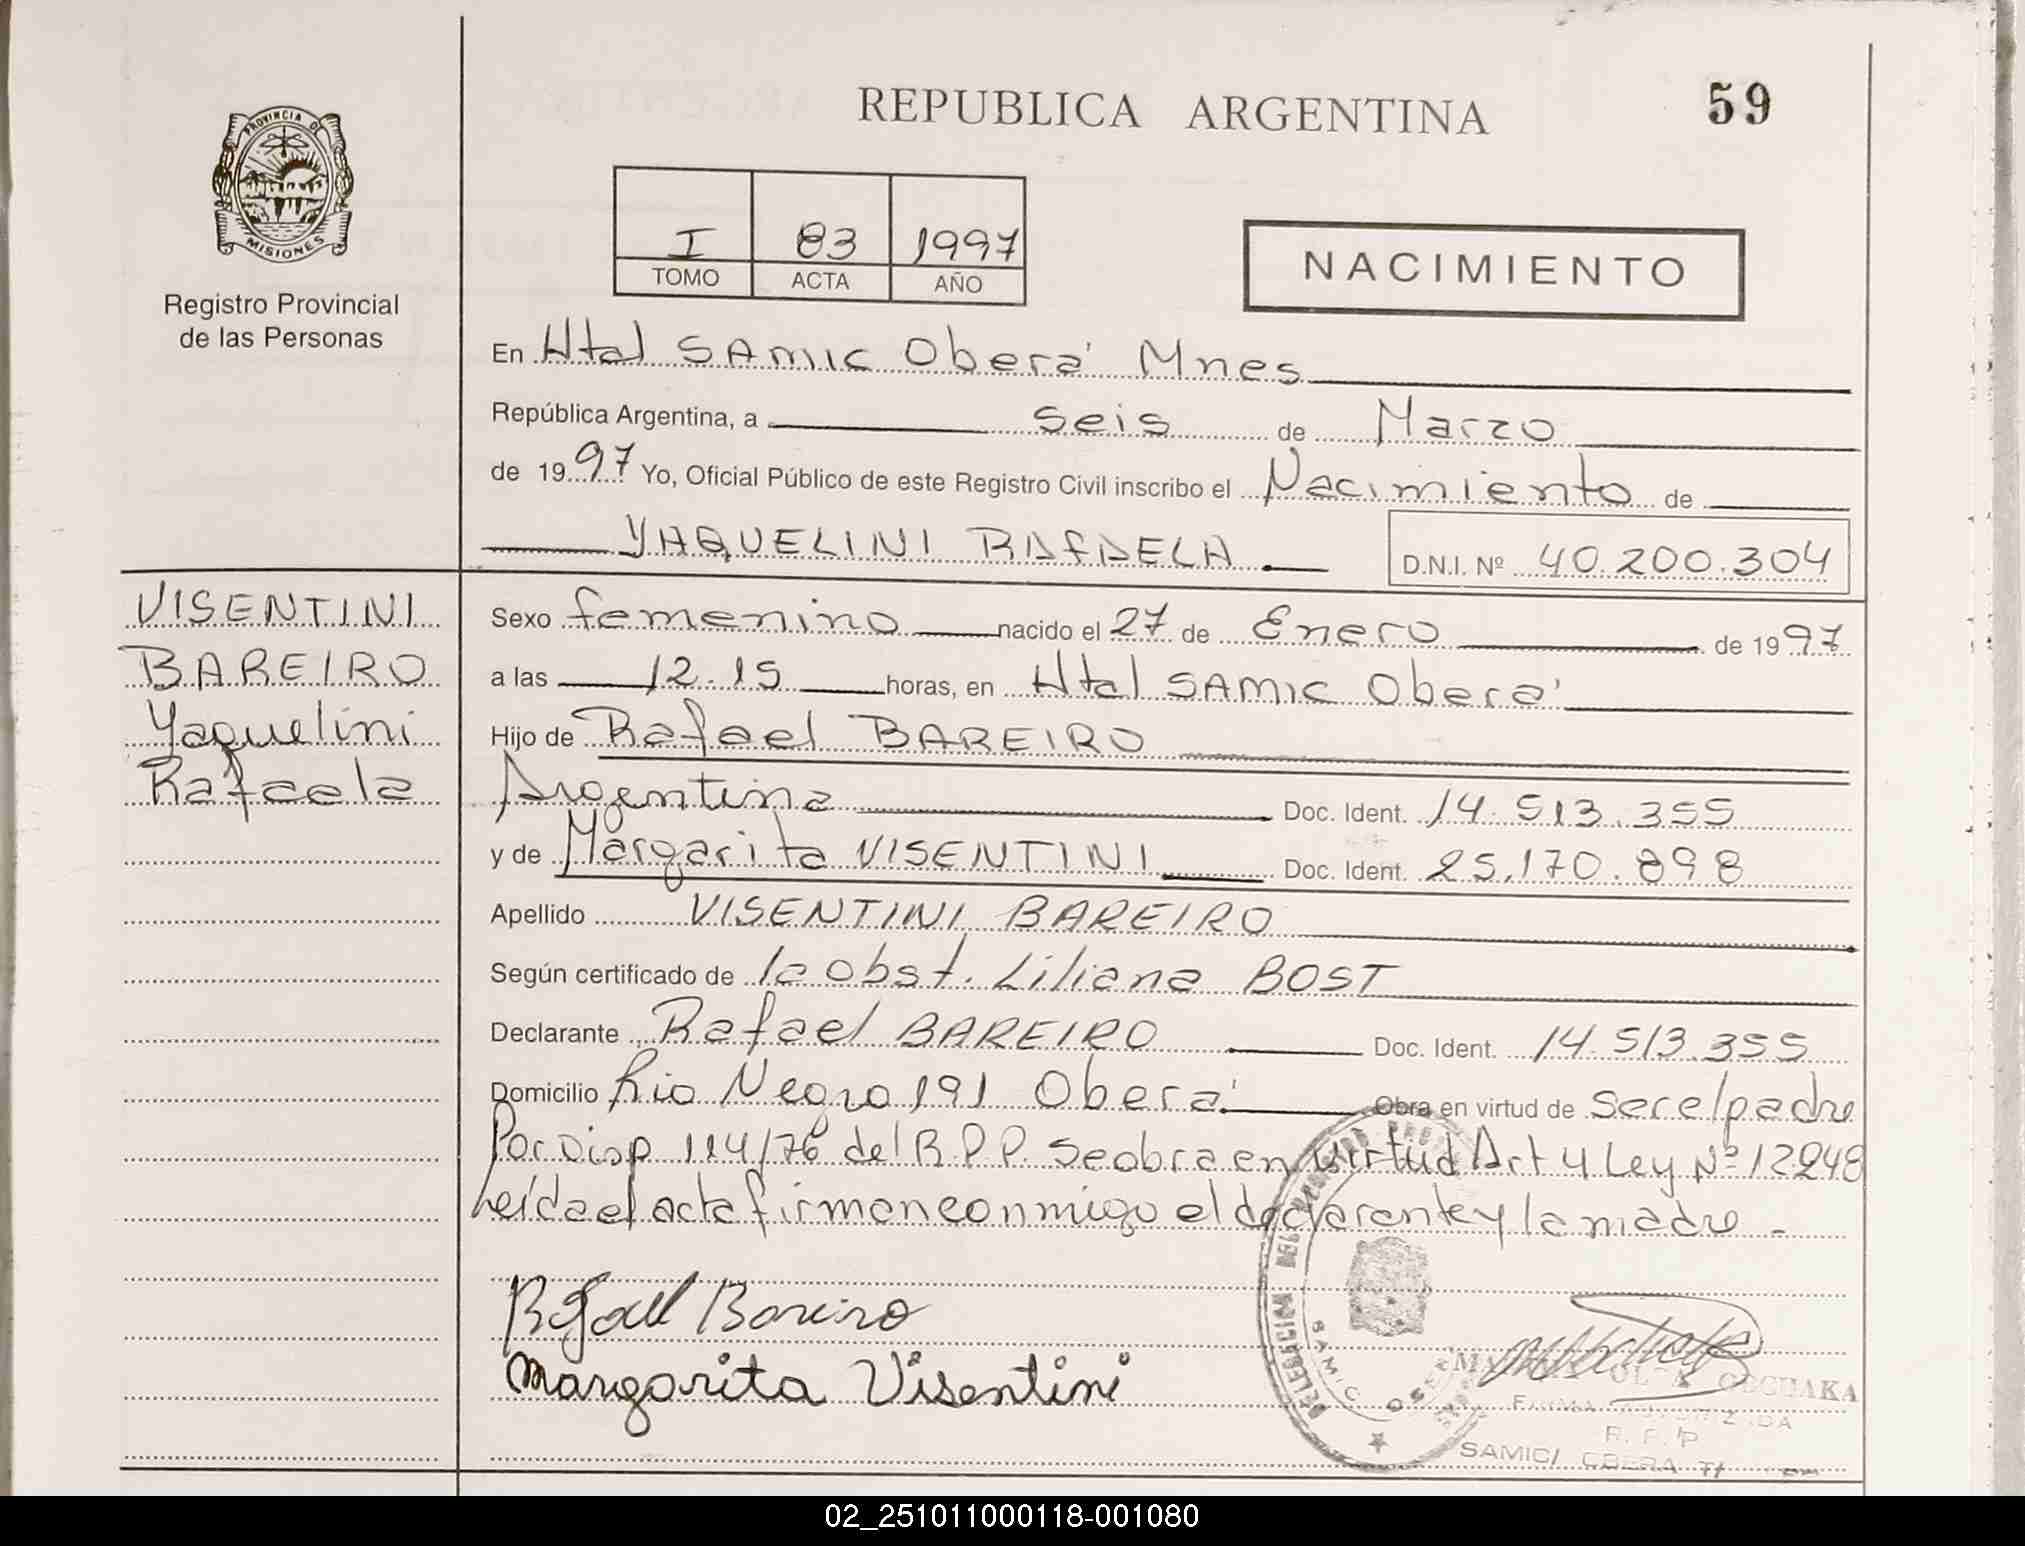 REPUBLICA ARGENTINA
59
PROVINCIA DE
MISIONES
Registro Provincial
de las Personas
I 83 1997
TOMO ACTA AÑO
NACIMIENTO
En Htal SAMIC Oberá Mnes
República Argentina, a seis de Marzo
de 1997 Yo, Oficial Público de este Registro Civil inscribo el Nacimiento de
YAQUELINI RAFAELA D.N.I. Nº 40.200.304
VISENTINI
BAREIRO
Yaquelini
Rafaela
Sexo femenino nacido el 27 de Enero de 1997
a las 12.15 horas, en Htal SAMIC Oberá
Hijo de Rafael BAREIRO
Argentina Doc. Ident. 14.513.355
y de Margarita VISENTINI Doc. Ident. 25.170.898
Apellido VISENTINI BAREIRO
Según certificado de la obst. Liliana BOST
Declarante Rafael BAREIRO Doc. Ident. 14.513.355
Domicilio Rio Negro 191 Oberá Obra en virtud de ser el padre
Por Disp 114/76 del R.P.P. se obra en virtud Art 4 Ley Nº 12248
Leída el acta firman conmigo el declarante y la madre.-
Rafael Bareiro
Margarita Visentini
DELEGACION
SAMIC OBERA
FIRMA AUTORIZADA
R.P.P
SAMIC/ OBERA
02_251011000118-001080